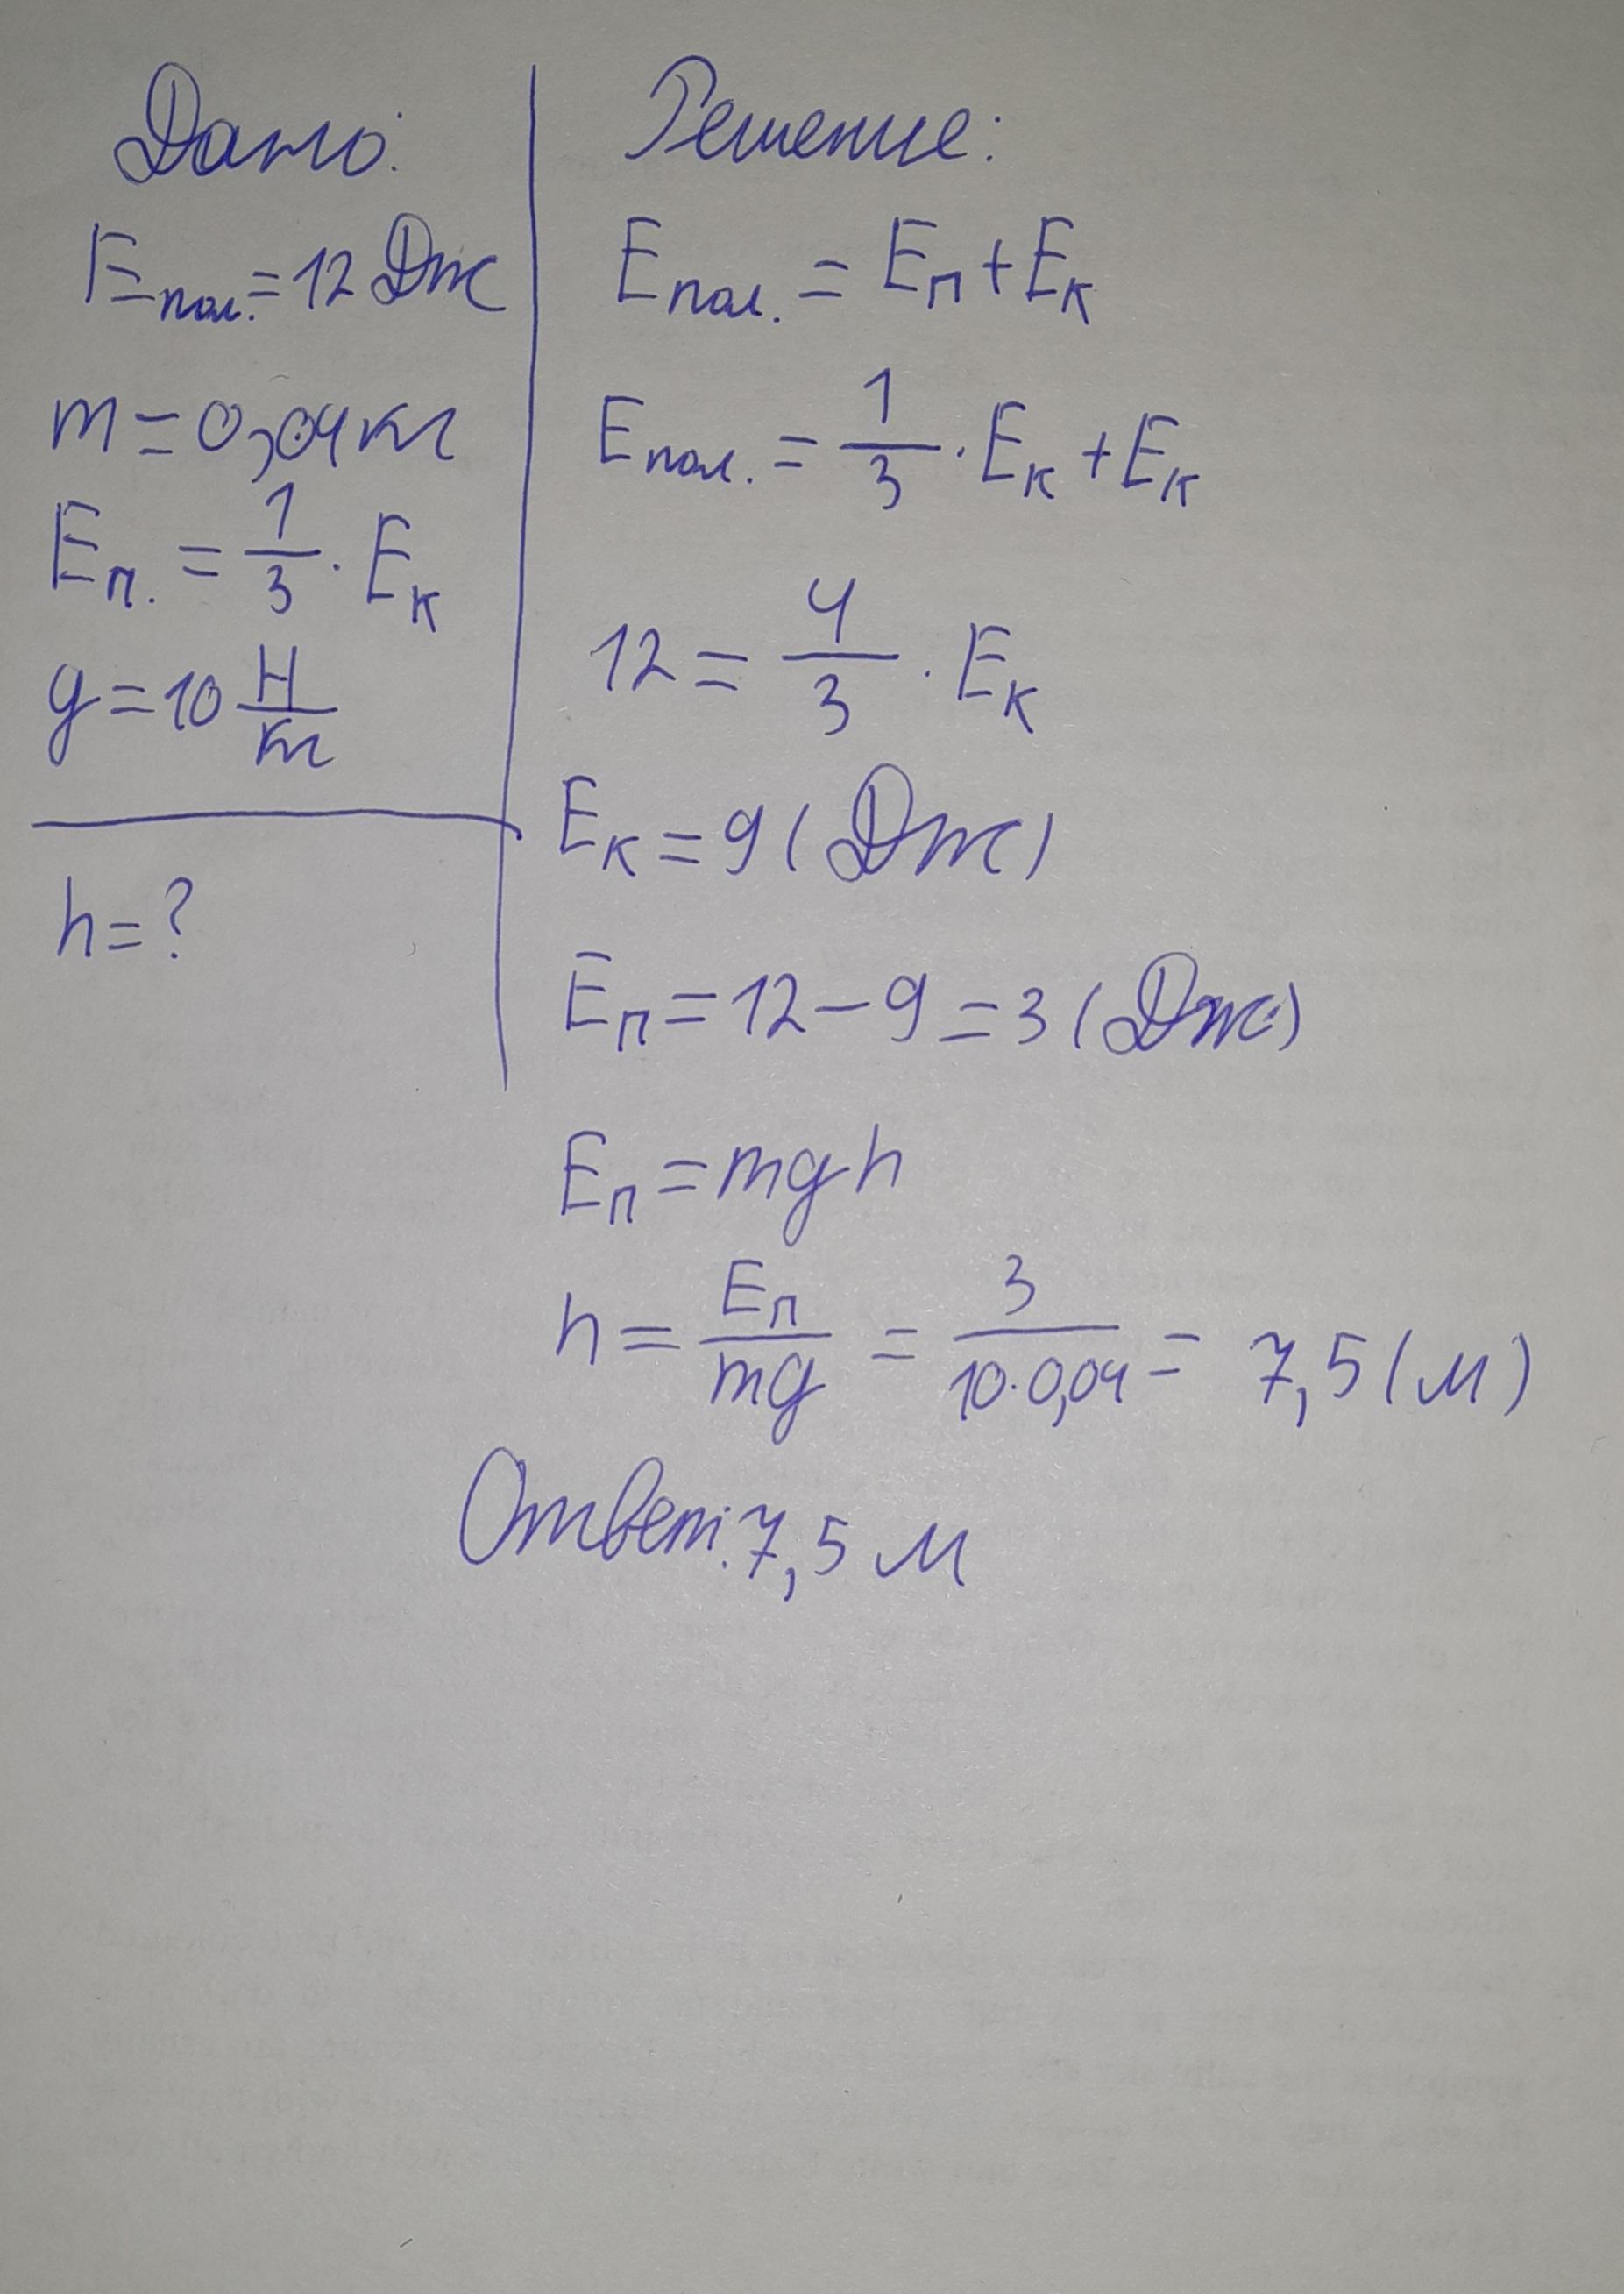 Дано:
Eпол. = 12 Дж
m = 0,04 кг
Eп. = 1/3 · Eк
g = 10 Н/кг
h = ?
Решение:
Eпол. = Eп + Eк
Eпол. = 1/3 · Eк + Eк
12 = 4/3 · Eк
Eк = 9 (Дж)
Eп = 12 − 9 = 3 (Дж)
Eп = mgh
h = Eп/mg = 3/10·0,04 = 7,5 (м)
Ответ: 7,5 м